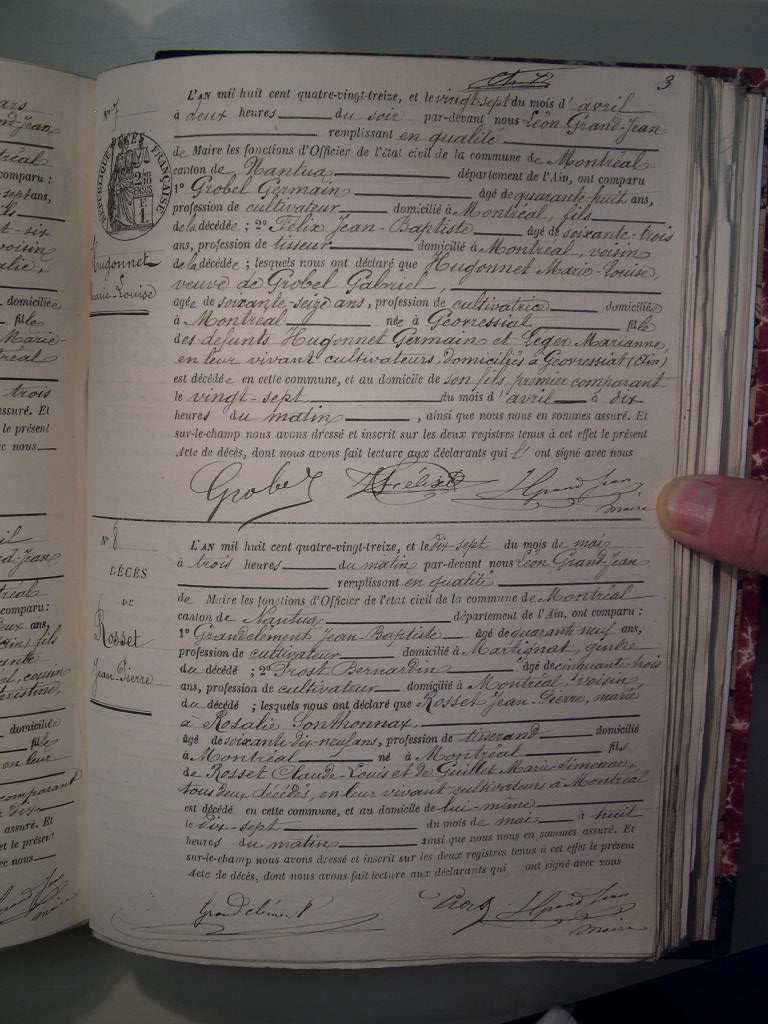 3
N° 7
L'AN mil huit cent quatre-vingt-treize, et le vingt-sept du mois d'avril
à deux heures du soir par-devant nous Léon Grand-Jean
remplissant en qualité
de Maire les fonctions d'Officier de l'état civil de la commune de Montréal
canton de Nantua département de l'Ain, ont comparu
1° Grobel Germain âgé de quarante huit ans,
profession de cultivateur domicilié à Montréal, fils
de la décédée ; 2° Félix Jean-Baptiste âgé de soixante-trois
ans, profession de tisseur domicilié à Montréal, voisin
de la décédée ; lesquels nous ont déclaré que Hugonnet Marie-Louise
veuve de Grobel Gabriel,
âgée de soixante-seize ans, profession de cultivatrice domiciliée
à Montréal née à Géovressiat fille
des défunts Hugonnet Germain et Léger Marianne,
en leur vivant cultivateurs domiciliés à Géovressiat (Ain)
est décédée en cette commune, et au domicile de son fils premier comparant
le vingt-sept du mois d'avril à dix
heures du matin, ainsi que nous nous en sommes assuré. Et
sur-le-champ nous avons dressé et inscrit sur les deux registres tenus à cet effet le présent
Acte de décès, dont nous avons fait lecture aux déclarants qui ont signé avec nous
RÉPUBLIQUE FRANÇAISE
Hugonnet
Marie-Louise
Grobel Félix L Grand Jean
maire
N° 8
DÉCÈS
DE
Rosset
Jean Pierre
L'AN mil huit cent quatre-vingt-treize, et le dix-sept du mois de mai
à trois heures du matin par-devant nous Léon Grand-Jean
remplissant en qualité
de Maire les fonctions d'Officier de l'état civil de la commune de Montréal
canton de Nantua département de l'Ain, ont comparu :
1° Grandclément Jean Baptiste âgé de quarante neuf ans,
profession de cultivateur domicilié à Martignat, gendre
du décédé ; 2° Prost Bernardin âgé de cinquante-trois
ans, profession de cultivateur domicilié à Montréal, voisin
du décédé ; lesquels nous ont déclaré que Rosset Jean-Pierre, marié
à Rosalie Sonthonnax,
âgé de soixante-dix-neuf ans, profession de tisserand domicilié
à Montréal né à Montréal fils
de Rosset Claude-Louis et de Guillet Marie-Simonne,
tous deux décédés, en leur vivant cultivateurs à Montréal
est décédé en cette commune, et au domicile de lui-même
le dix-sept du mois de mai à huit
heures du matin ainsi que nous nous en sommes assuré. Et
sur-le-champ nous avons dressé et inscrit sur les deux registres tenus à cet effet le présent
Acte de décès, dont nous avons fait lecture aux déclarants qui ont signé avec nous
Grandclément L Grand Jean
maire